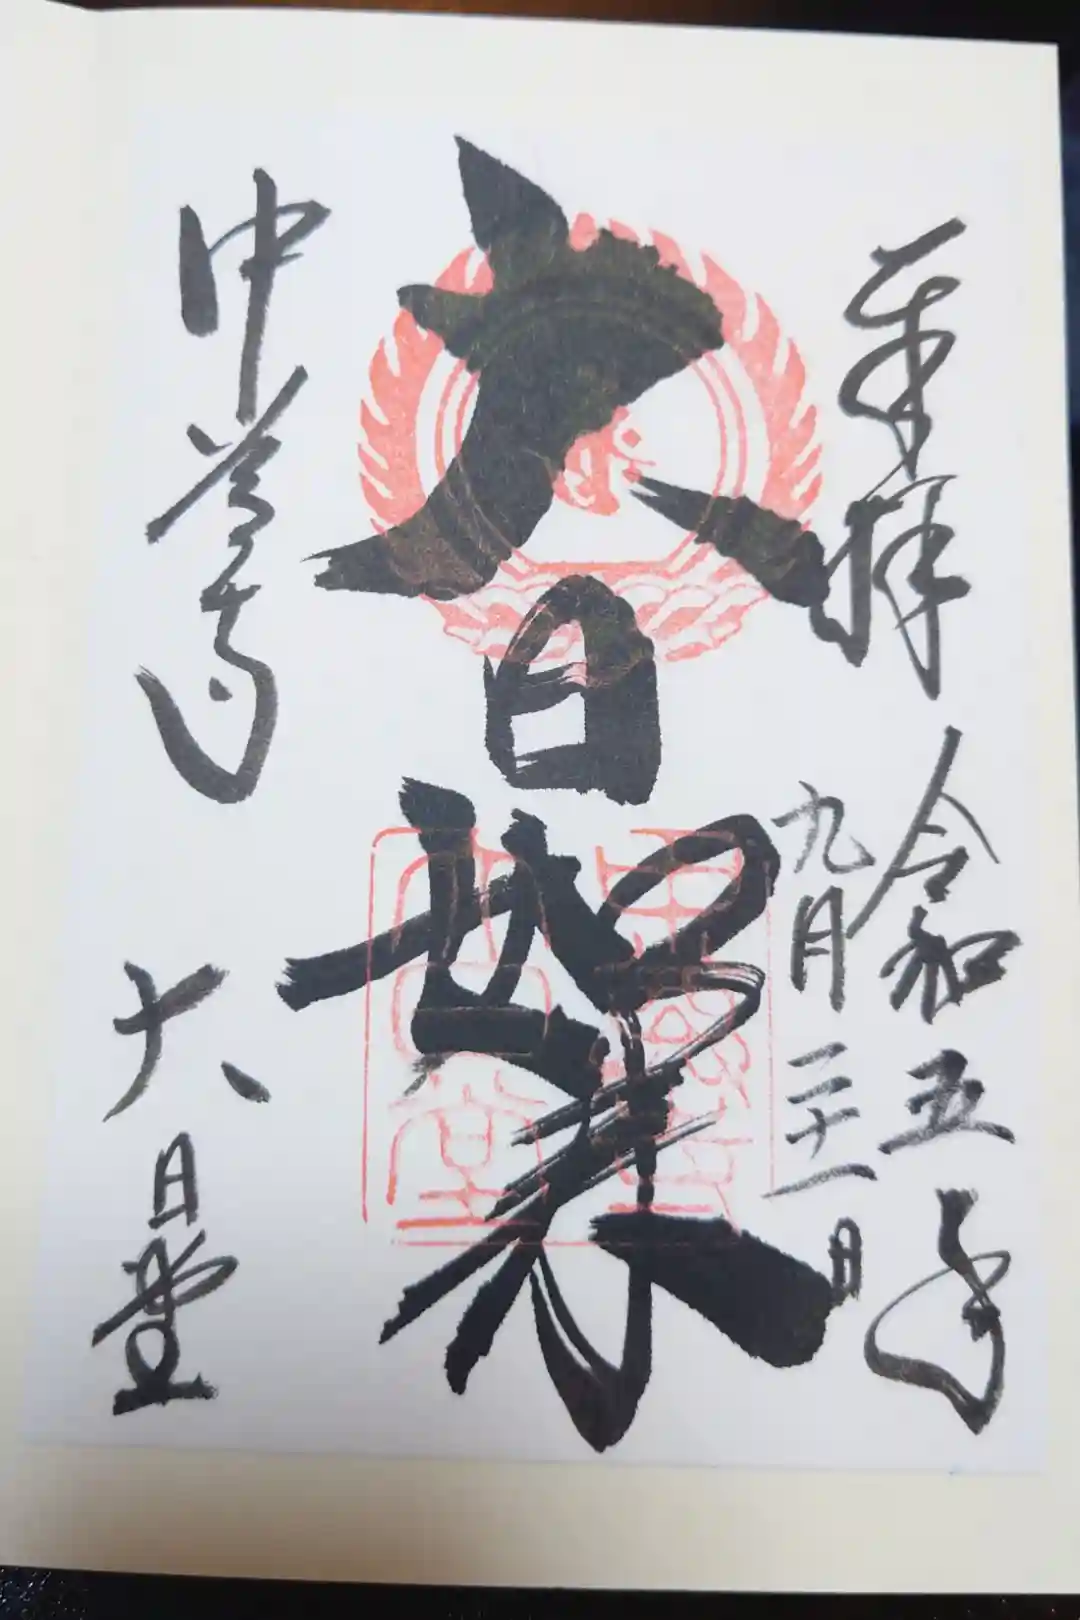 奉拝 令和五年
九月二十一日
大日如来
中尊寺 大日堂